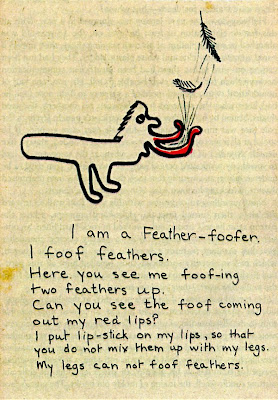 I am a Feather-foofer.
I foof feathers.
Here, you see me foof-ing
two feathers up.
Can you see the foof coming
out my red lips?
I put lip-stick on my lips, so that
you do not mix them up with my legs.
My legs can not foof feathers.